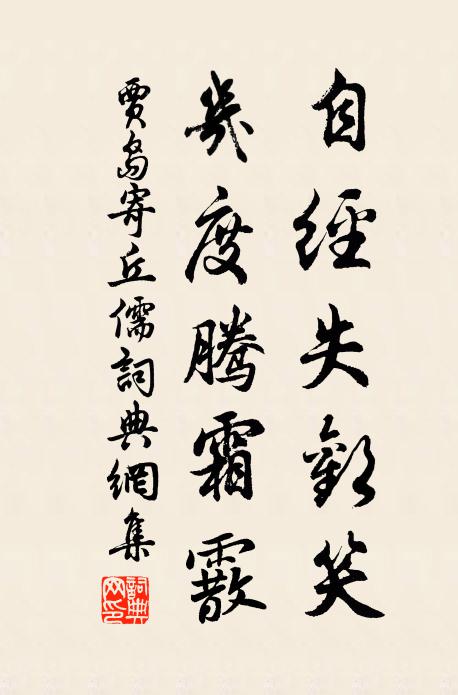 自經失歡笑
幾度騰霜霰
賈島寄丘儒詞典網集
詞典网印